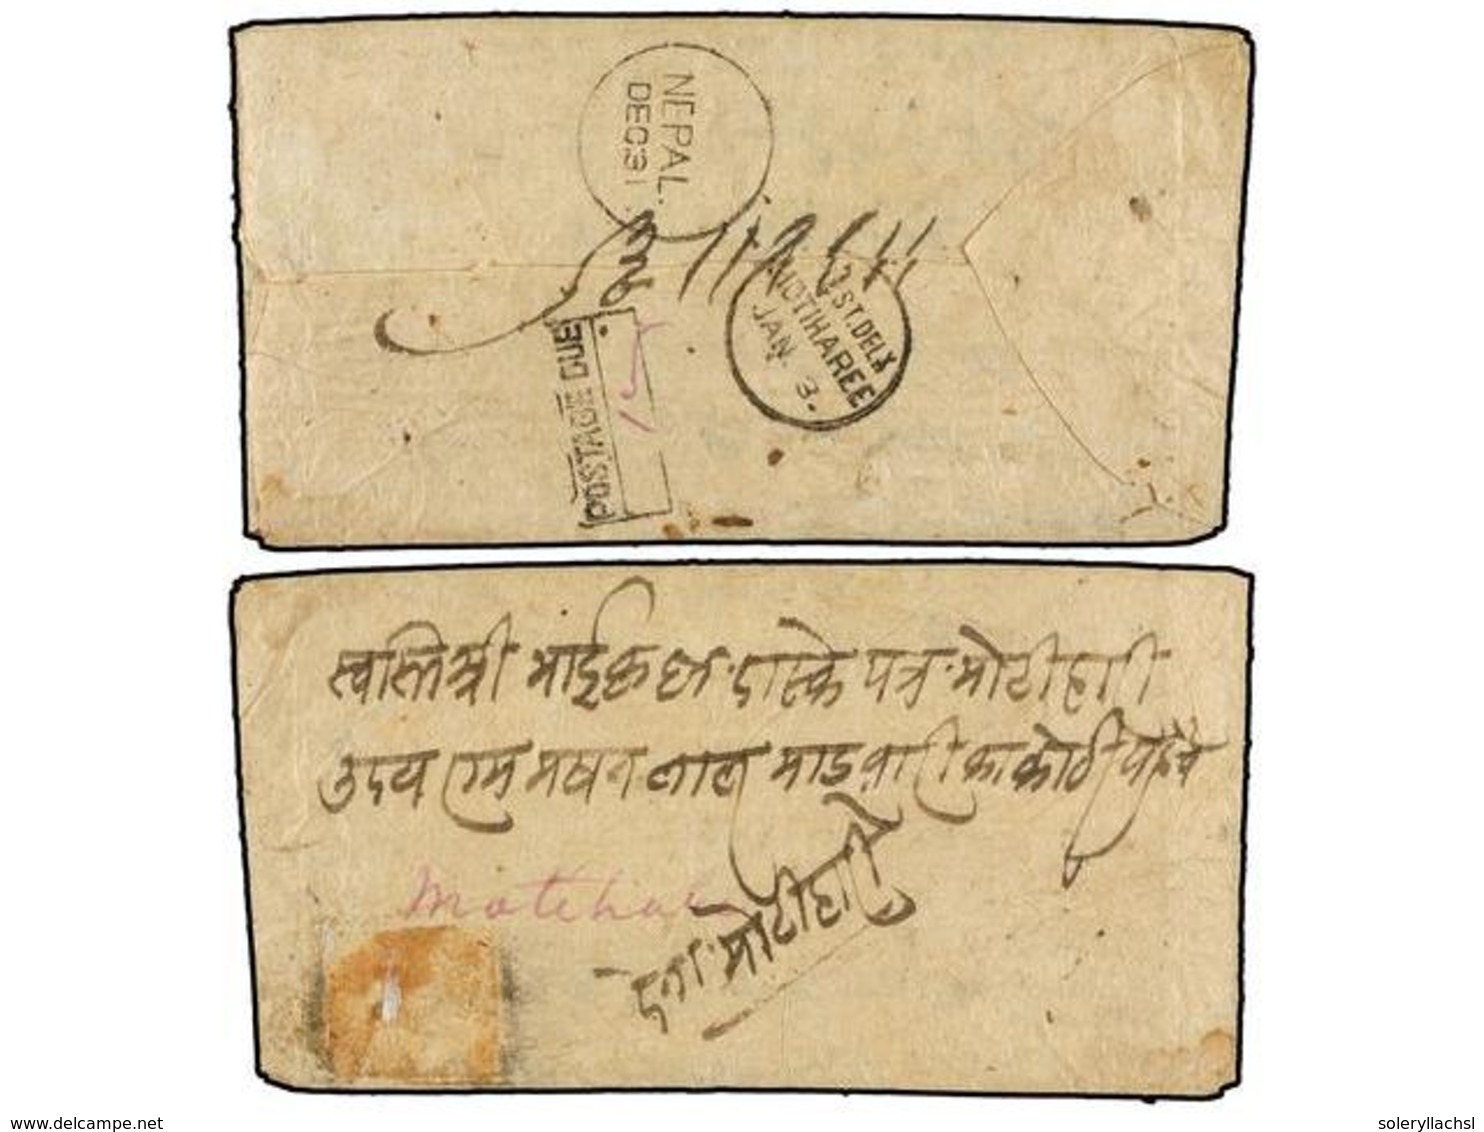 NEPAL.
DEC31
1ST.DELY
MOTIHAREE
JAN. 3.
POSTAGE DUE
स्वस्तिश्री भाई दासके पत्र मोटीहारी
उदय राम मखन लाल माडवारी का कोठी पहुंचे
Motehar
देना मोटीहारी
www.delcampe.net
soleryllachsl